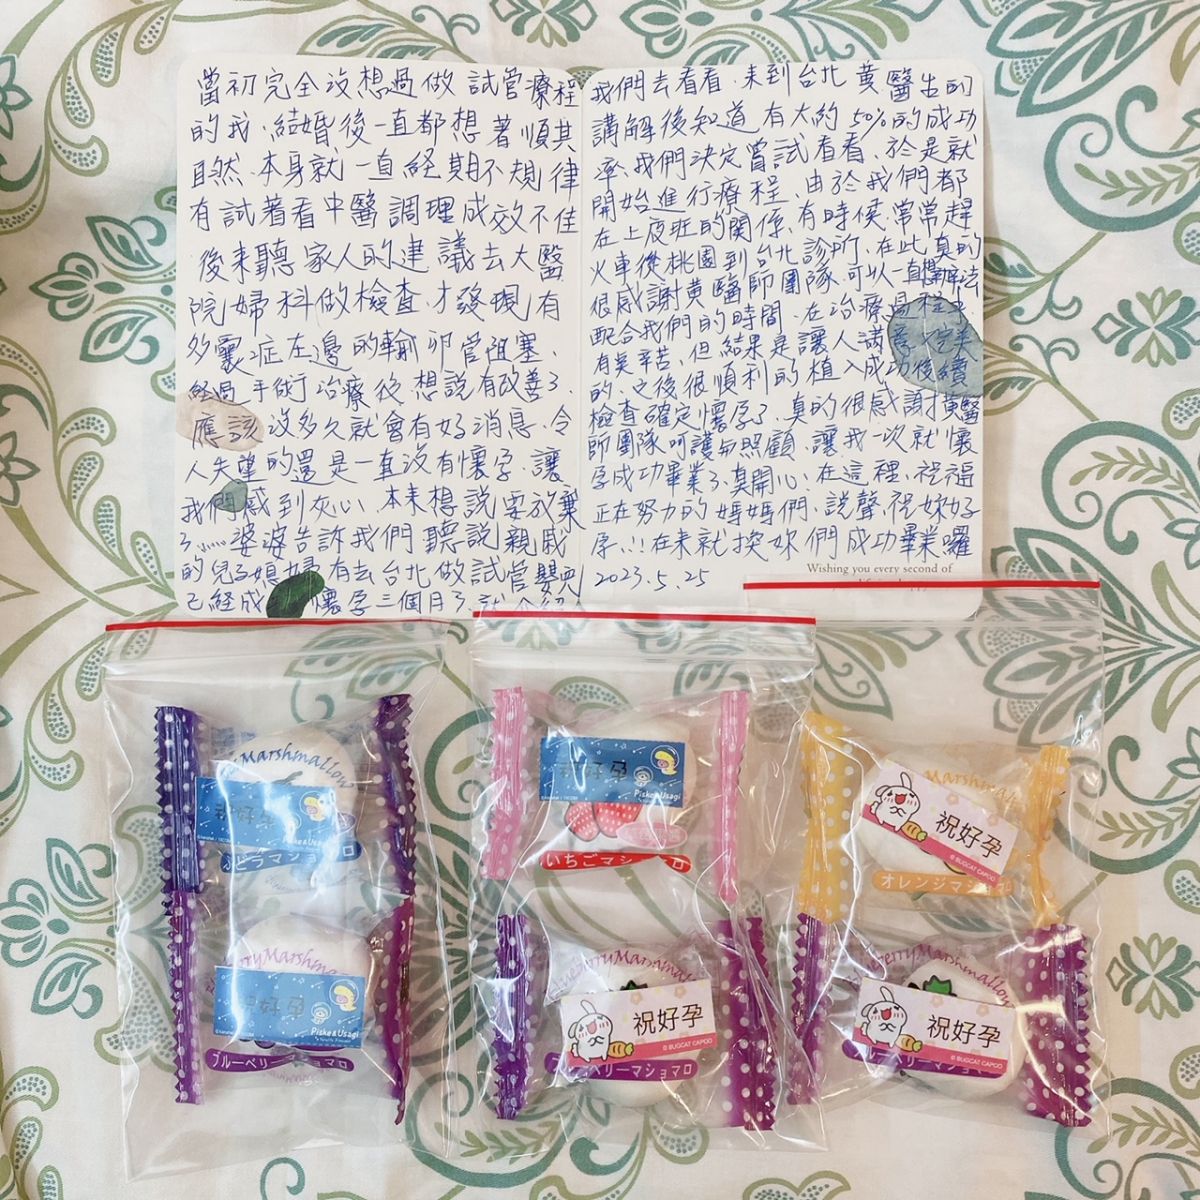 當初完全沒想過做試管療程
的我,結婚後一直都想著順其
自然,本身就一直經期不規律
有試著看中醫調理成效不佳
後來聽家人的建議去大醫
院婦科做檢查,才發現有
多囊症左邊的輸卵管阻塞、
經過手術治療後想說有改善了、
應該沒多久就會有好消息、令
人失望的還是一直沒有懷孕,讓
我們感到灰心,本來想說要放棄
了......婆婆告訴我們聽說親戚
的兒子媳婦有去台北做試管嬰兒
已經成 懷孕三個月了
我們去看看,來到台北黃醫生的
講解後知道有大約50%的成功
率,我們決定嘗試看看、於是就
開始進行療程、由於我們都
在上夜班的關係、有時候,常常趕
火車從桃園到台北診所、在此,真的
很感謝黃醫師團隊,可以一直想辦法
配合我們的時間,在治療過程中
有點辛苦、但結果是讓人滿意、完美
的,之後很順利的植入成功後續
檢查確定懷孕了,真的很感謝黃醫
師團隊呵護與照顧,讓我一次就懷
孕成功畢業了,真開心,在這裡,祝福
正在努力的媽媽們,說聲,祝妳好
孕..!!在來就換妳們成功畢業囉
Wishing you every second of
2023.5.25
Marshmallow
好孕
Piske&Usagi
ぶどうマショマロ
好孕
Piske&Usagi
いちごマショマロ
Marshmallow
祝好孕
© BUGCAT CAPOO
オレンジマショマロ
Marshmallow
好孕
Piske&Usagi
ブルーベリーマショマロ
Marshmallow
祝好孕
© BUGCAT CAPOO
ブルーベリーマショマロ
Marshmallow
祝好孕
© BUGCAT CAPOO
ブルーベリーマショマロ